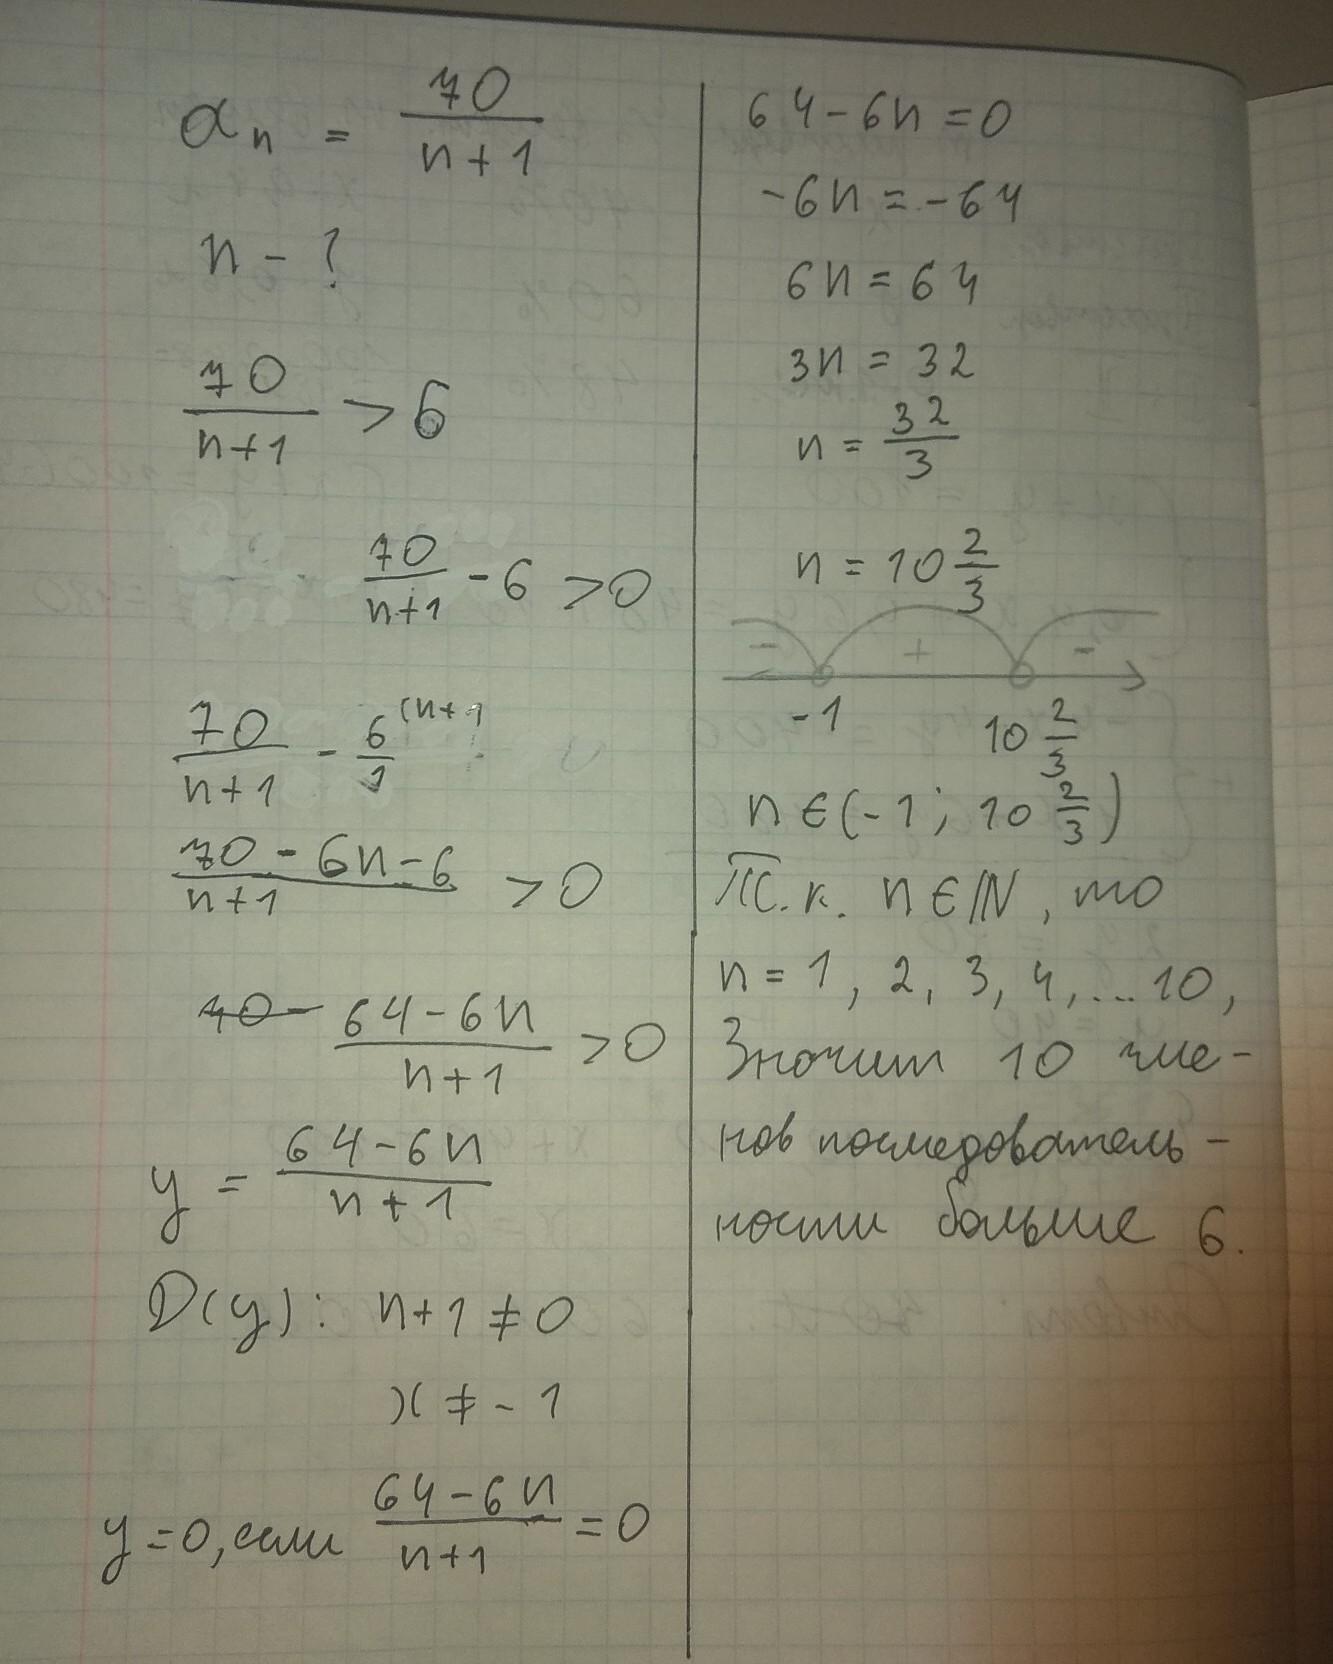 aₙ = 70/(n+1)
n - ?
70/(n+1) > 6
70/(n+1) - 6 > 0
70/(n+1) - 6/1 (n+1
(70 - 6n - 6)/(n+1) > 0
70 - (64 - 6n)/(n+1) > 0
y = (64 - 6n)/(n+1)
D(y): n+1 ≠ 0
x ≠ -1
y=0, если (64 - 6n)/(n+1) = 0
64 - 6n = 0
-6n = -64
6n = 64
3n = 32
n = 32/3
n = 10 2/3
- + -
-1 10 2/3
n ∈ (-1; 10 2/3)
Т.к. n ∈ N, то
n = 1, 2, 3, 4, ... 10,
Значит 10 чле-
нов последователь-
ности больше 6.